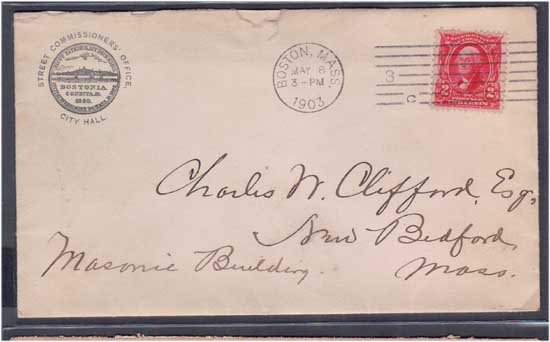 STREET COMMISSIONERS' OFFICE,
BOSTONIA
CONDITA AD.
1630.
CITY HALL.
BOSTON, MASS.
MAY 6
3-PM
1903
3
C
2 2
Charles W. Clifford, Esq,
New Bedford,
Masonic Building.
Mass.